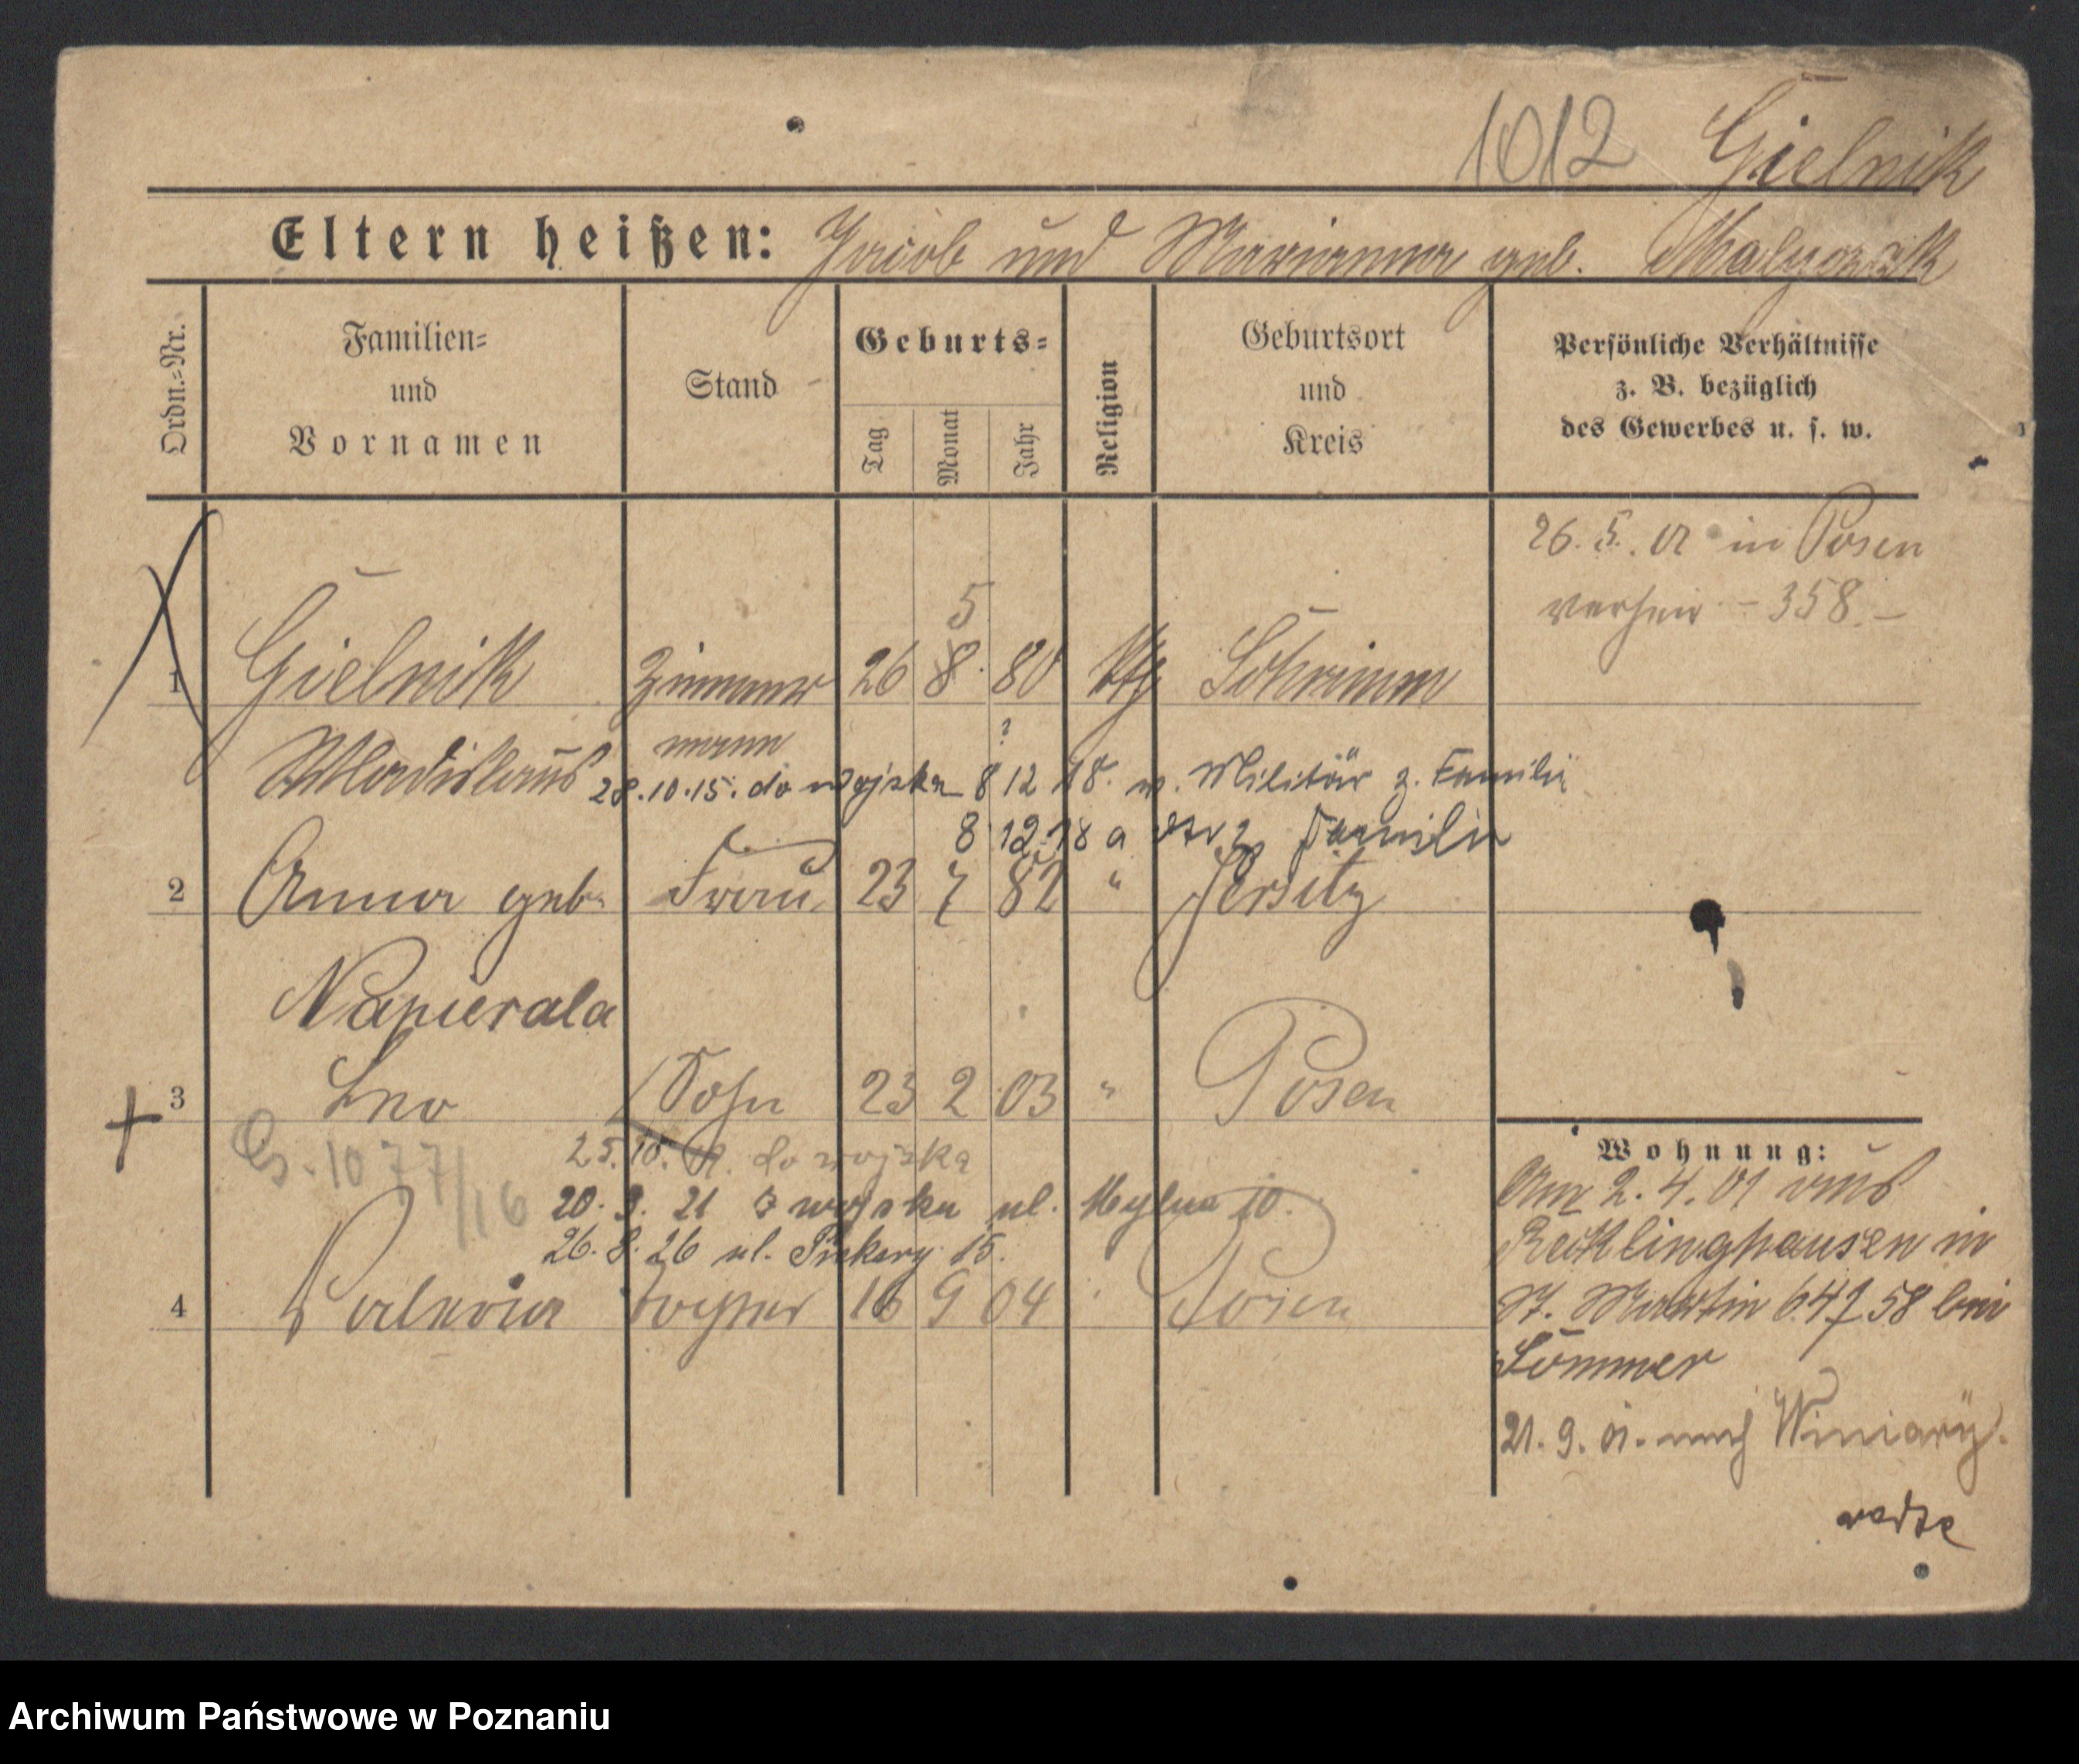 1012 Gielnik
Eltern heißen: Jacob und Marianna geb.
Ordn.=Nr.
Familien= und Vornamen
Stand
Geburts=
Tag
Monat
Jahr
Religion
Geburtsort und Kreis
Persönliche Verhältnisse z. B. bezüglich des Gewerbes u. s. w.
26. 5. 01 in Posen
verheir. – 358. –
5
1 Gielnik Zimmer 26 8. 80 Kth Schrimm
?
Wladislaus mann
28.10.15. do wojska 8 12 18. v. Militär z. Familie
8 12 18 a z Familie
2 Anna geb. Frau 23 7 82 " Jersitz
Napierala
3 Leo Sohn 23 2 03 " Posen
G. 1077/16
25. 10. do wojska
20. 9. 21 z wojska ul. 10.
26. 8. 26 ul. Piekary 15.
4 Pelagia Tochter 16 9 04 " Posen
Wohnung:
Am 2. 4. 01 aus
Recklinghausen in
St. Martin 64/58 bei
Sommer
21. 9. 01. nach Winiary.
Archiwum Państwowe w Poznaniu